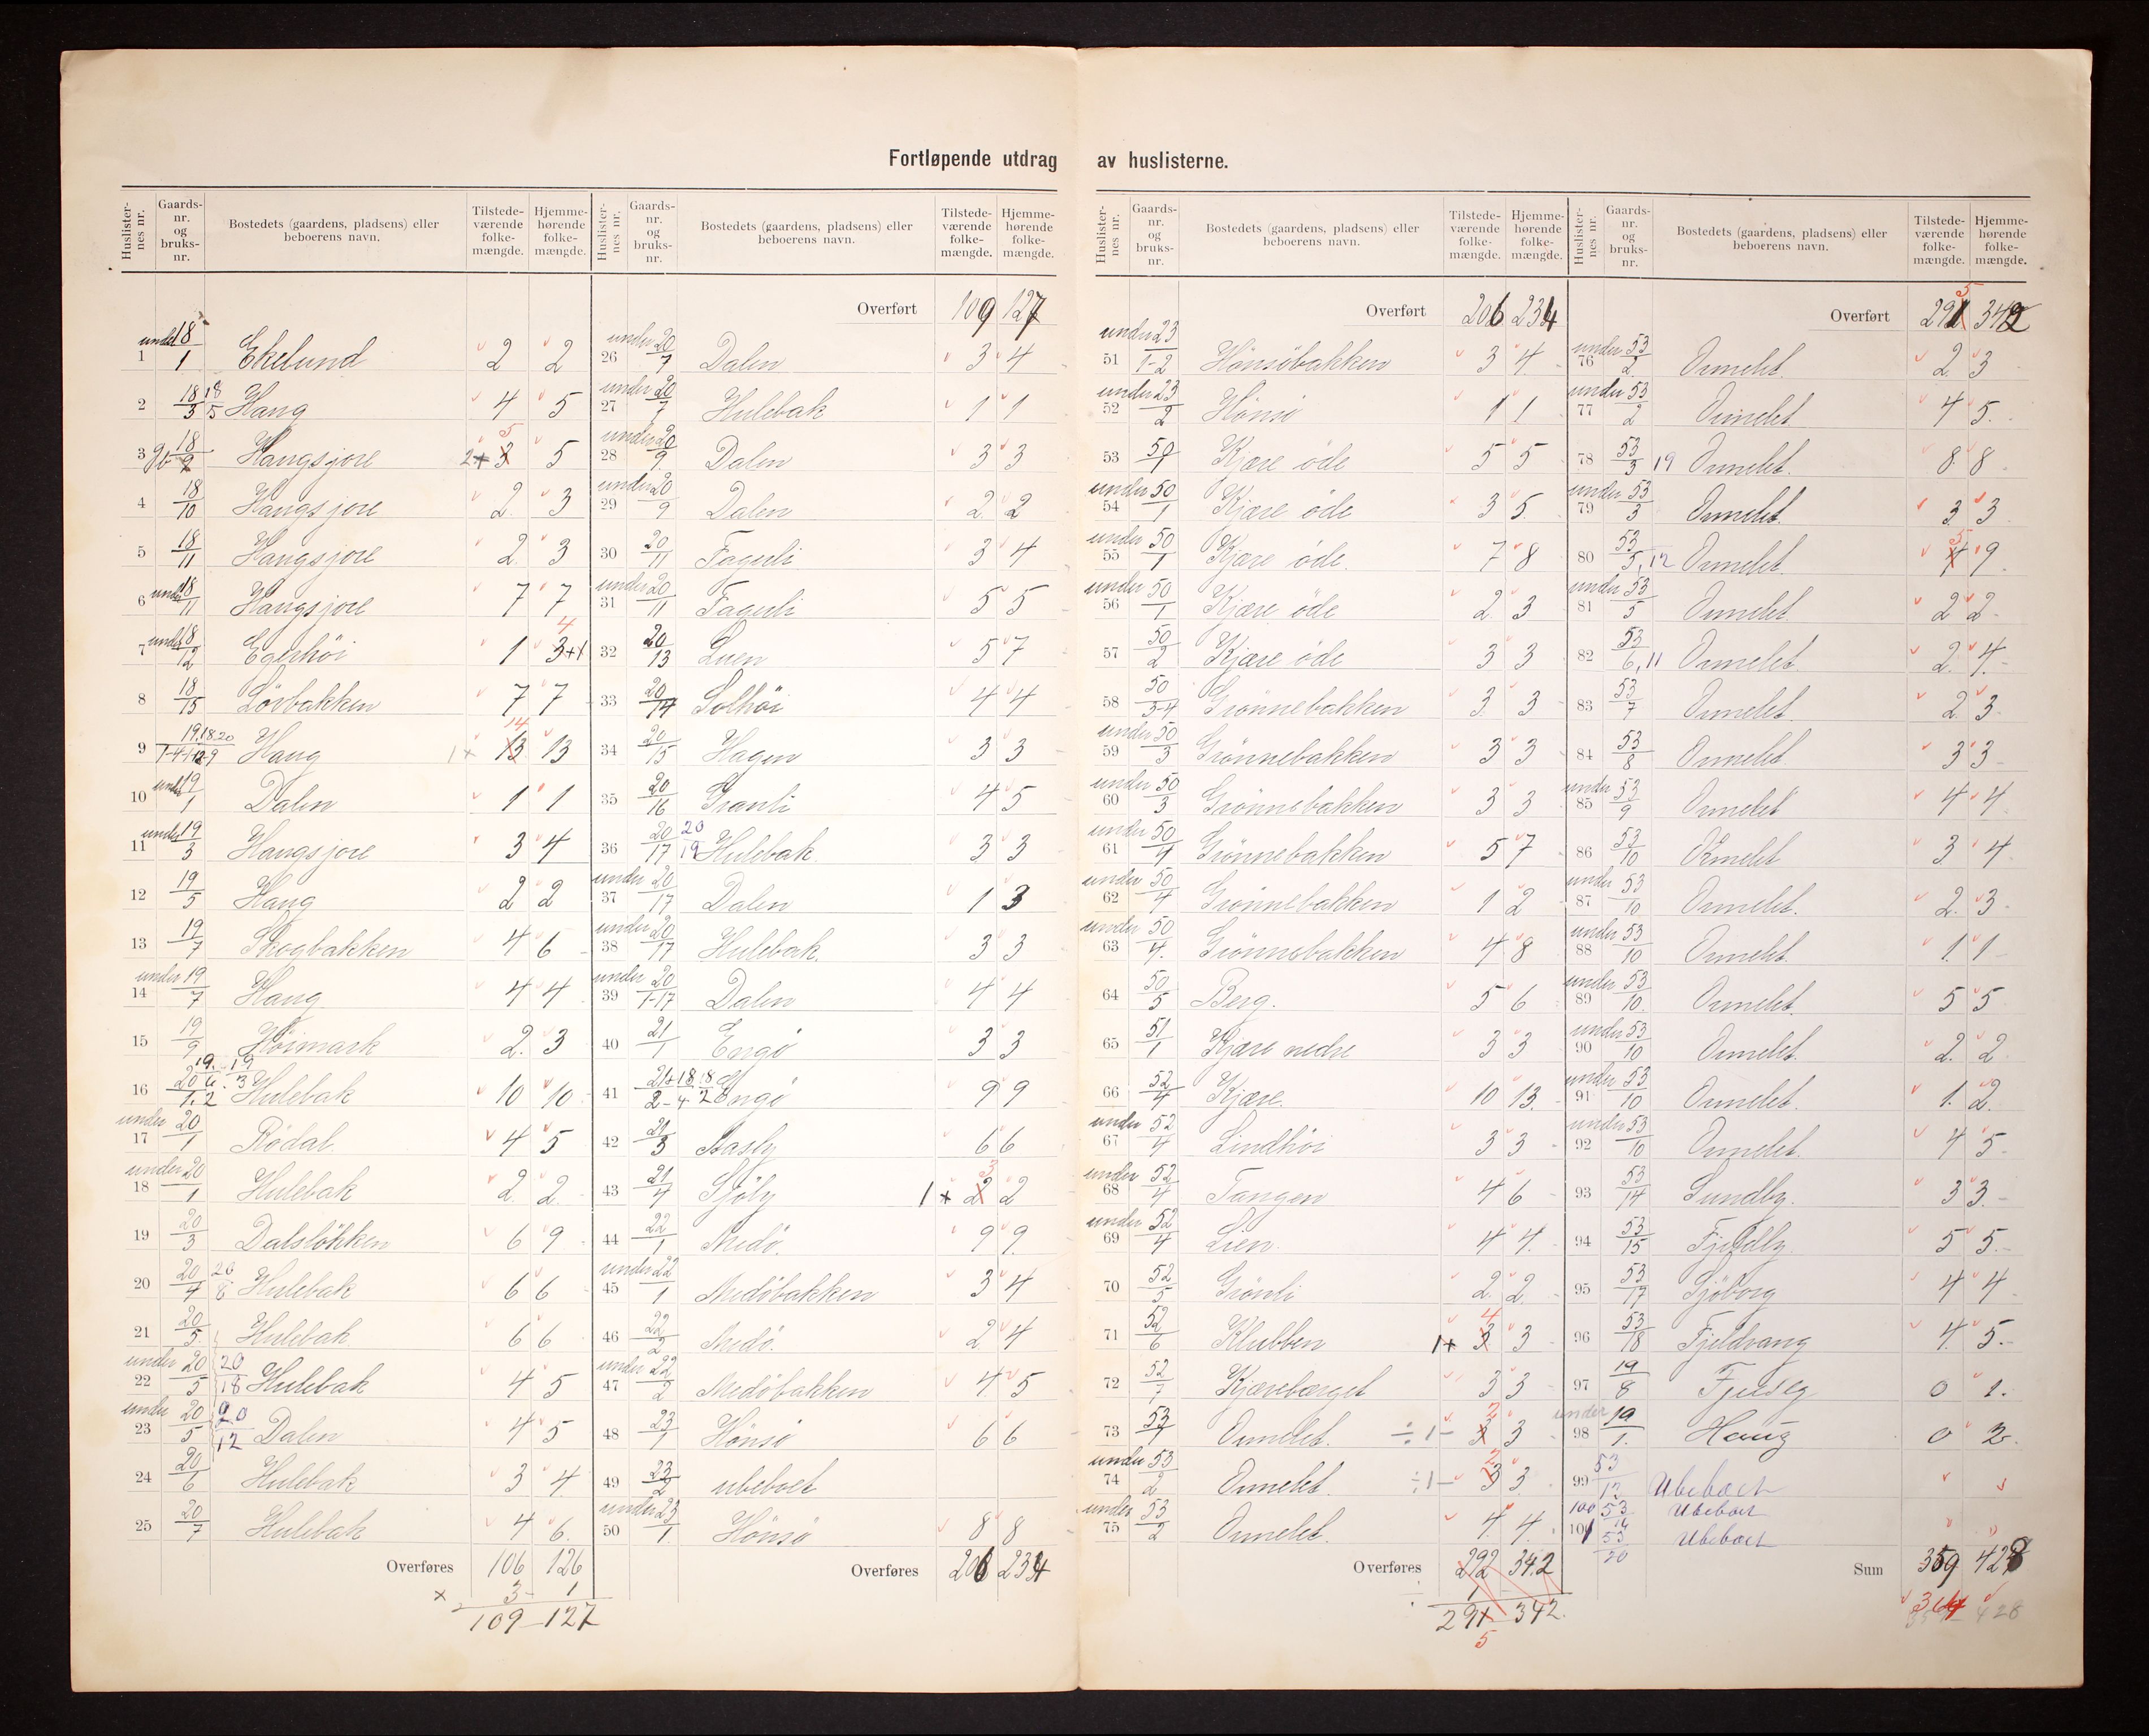 Fortløpende utdrag av huslisterne.
Huslisternes nr. Gaardsnr. og bruksnr. Bostedets (gaardens, pladsens) eller beboerens navn. Tilstedeværende folkemængde. Hjemmehørende folkemængde.
1 under 18/1 Ekelund 2 2
2 18/3 18/5 Haug 4 5
3 18/9 Haugsjore 2+ 3 5 5
4 18/10 Haugsjore 2 3
5 18/11 Haugsjore 2 3
6 under 18/11 Haugsjore 7 7
7 under 18/12 Egerhöi 1 3+1 4
8 18/15 Lövbakken 7 7
9 Haug 1+ 13 14 13
10 under 19/1 Dalen 1 1
11 under 19/3 Haugsjore 3 4
12 19/5 Haug 2 2
13 19/7 Skogbakken 4 6
14 under 19/7 Haug 4 4
15 19/9 Höimark 2 3
16 Hulebak 10 10
17 under 20/1 Rödal 4 5
18 under 20/1 Hulebak 2 2
19 20/3 Dalslökken 6 9
20 20/4 20/8 Hulebak 6 6
21 20/5 Hulebak 6 6
22 under 20/5 20/18 Hulebak 4 5
23 under 20/5 20/12 Dalen 4 5
24 20/6 Hulebak 3 4
25 20/7 Hulebak 4 6
Overføres 106 126
× 3 1
109 127
Huslisternes nr. Gaardsnr. og bruksnr. Bostedets (gaardens, pladsens) eller beboerens navn. Tilstedeværende folkemængde. Hjemmehørende folkemængde.
Overført 109 127
26 under 20/7 Dalen 3 4
27 under 20/7 Hulebak 1 1
28 under 20/9 Dalen 3 3
29 under 20/9 Dalen 2 2
30 20/11 Fagerli 3 4
31 under 20/11 Fagerli 5 5
32 20/13 Luen 5 7
33 20/14 Solhöi 4 4
34 20/15 Hagen 3 3
35 20/16 Granli 4 5
36 20/17 20/19 Hulebak 3 3
37 under 20/17 Dalen 1 3
38 under 20/17 Hulebak 3 3
39 under 20/1-17 Dalen 4 4
40 21/1 Engö 3 3
41 Engö 9 9
42 21/3 Aasly 6 6
43 21/4 Sjöly 1+ 2 3 2
44 22/1 Medö 9 9
45 under 22/1 Medöbakken 3 4
46 22/2 Medö 2 4
47 under 22/2 Medöbakken 4 5
48 23/1 Hönsö 6 6
49 23/2 ubeboet
50 under 23/1 Hönsö 8 8
Overføres 206 234
Huslisternes nr. Gaardsnr. og bruksnr. Bostedets (gaardens, pladsens) eller beboerens navn. Tilstedeværende folkemængde. Hjemmehørende folkemængde.
Overført 206 234
51 under 23/1-2 Hönsöbakken 3 4
52 under 23/2 Hönsö 1 1
53 50/1 Kjære öde 5 5
54 under 50/1 Kjære öde 3 5
55 under 50/1 Kjære öde 7 8
56 under 50/1 Kjære öde 2 3
57 50/2 Kjære öde 3 3
58 50/3-4 Grönnebakken 3 3
59 under 50/3 Grönnebakken 3 3
60 under 50/3 Grönnebakken 3 3
61 under 50/4 Grönnebakken 5 7
62 under 50/4 Grönnebakken 1 2
63 under 50/4 Grönnebakken 4 8
64 50/5 Berg 5 6
65 51/1 Kjære nedre 3 3
66 52/4 Kjære 10 13
67 under 52/4 Lindhöi 3 3
68 under 52/4 Tangen 4 6
69 under 52/4 Lien 4 4
70 52/5 Grönli 2 2
71 52/6 Klubben 1+ 3 4 3
72 52/7 Kjæreberget 3 3
73 53/1 Ormelet ÷1- 3 2 3
74 under 53/2 Ormelet ÷1- 3 2 3
75 under 53/2 Ormelet 4 4
Overføres 292 342
÷ 1
291 342
5
Huslisternes nr. Gaardsnr. og bruksnr. Bostedets (gaardens, pladsens) eller beboerens navn. Tilstedeværende folkemængde. Hjemmehørende folkemængde.
Overført 291 5 342
76 under 53/2 Ormelet 2 3
77 under 53/2 Ormelet 4 5
78 53/3 19 Ormelet 8 8
79 under 53/3 Ormelet 3 3
80 53/5,12 Ormelet 9
81 under 53/5 Ormelet 2 2
82 53/6,11 Ormelet 2 4
83 53/7 Ormelet 2 3
84 53/8 Ormelet 3 3
85 under 53/9 Ormelet 4 4
86 53/10 Ormelet 3 4
87 under 53/10 Ormelet 2 3
88 under 53/10 Ormelet 1 1
89 under 53/10 Ormelet 5 5
90 under 53/10 Ormelet 2 2
91 under 53/10 Ormelet 1 2
92 under 53/10 Ormelet 4 5
93 53/14 Sundby 3 3
94 53/15 Fjeldly 5 5
95 53/17 Sjöborg 4 4
96 53/18 Fjeldvang 4 5
97 19/8 Fjeldly 0 1
98 under 19/1 Haug 0 2
99 53/12 Ubeboet
100 53/16 Ubeboet
101 53/20 Ubeboet
Sum 359 428
364 428